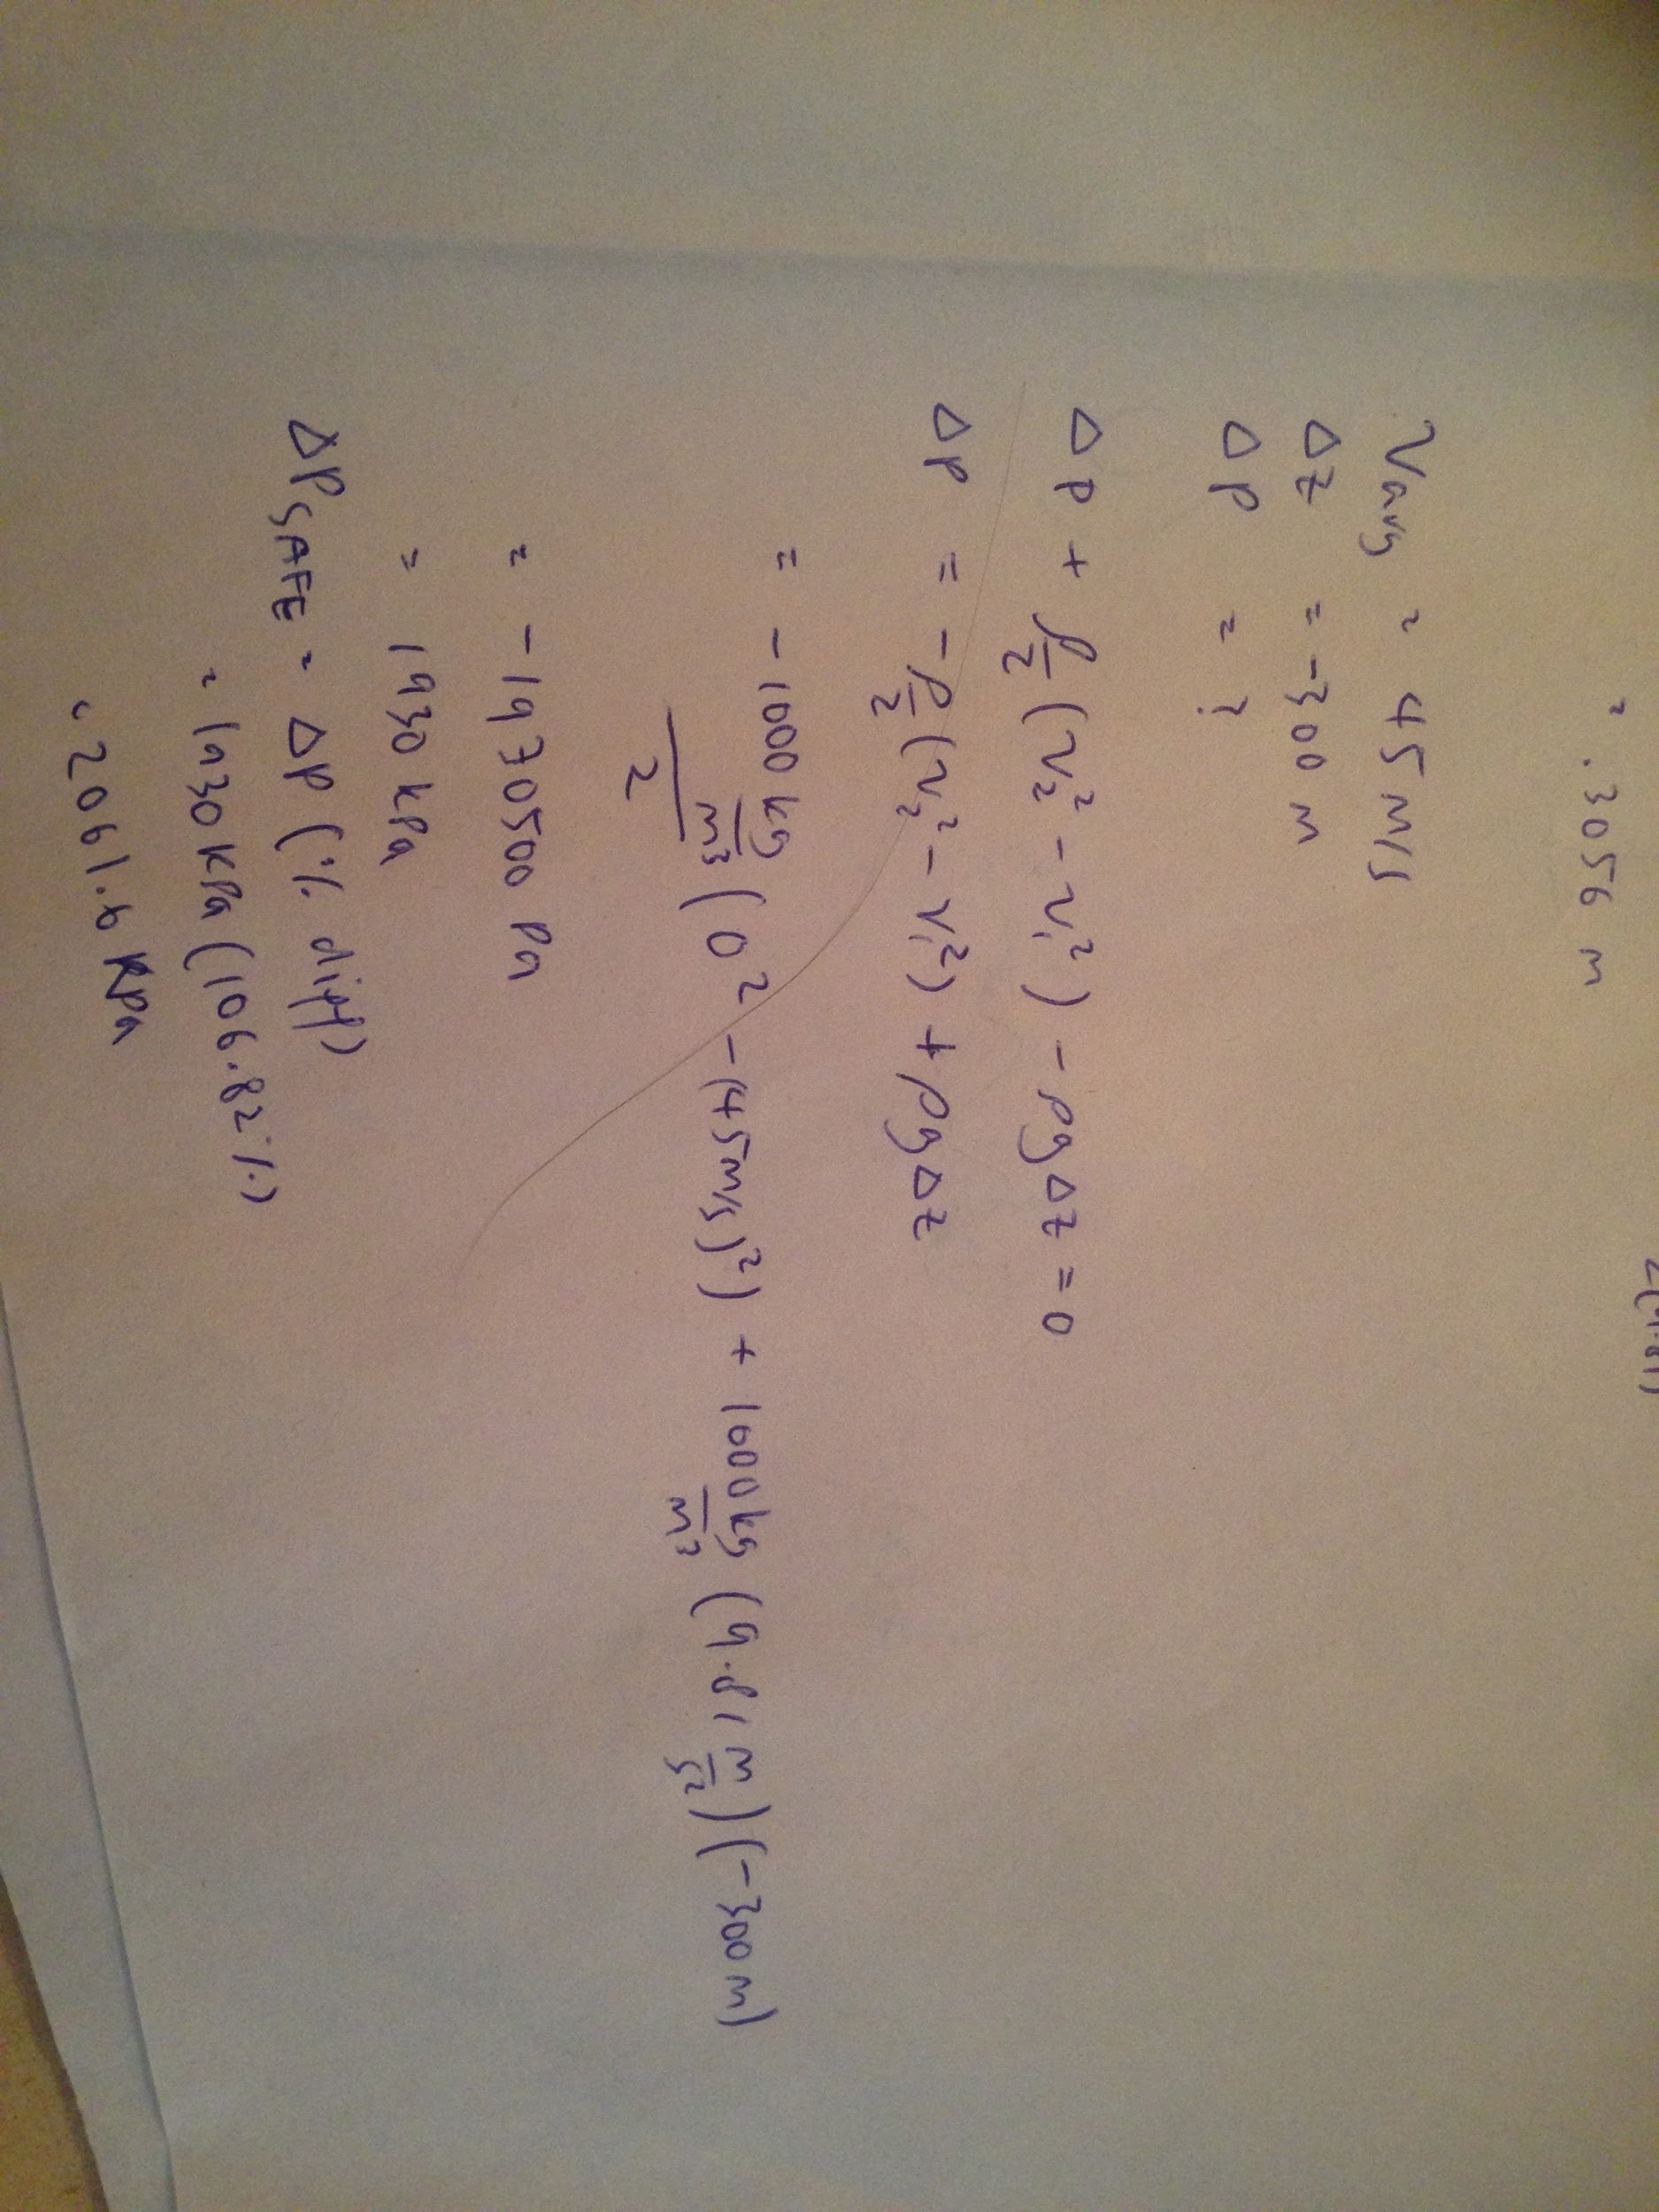 = .3056 m
Vavg = 45 m/s
Δz = -300 m
ΔP = ?
ΔP + ρ/2 (v₂² - v₁²) - ρgΔz = 0
ΔP = -ρ/2 (v₂² - v₁²) + ρgΔz
= -1000 kg/m³ / 2 (0² - (45m/s)²) + 1000 kg/m³ (9.81 m/s²)(-300m)
= -1970500 Pa
= 1930 kPa
ΔPSAFE = ΔP (% diff)
= 1930 kPa (106.82%)
= 2061.6 kPa